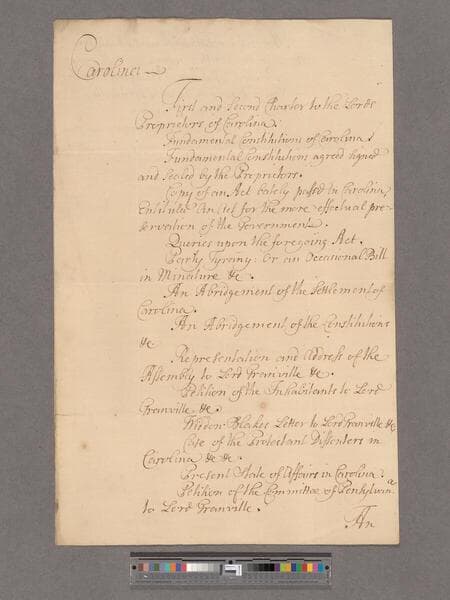 Carolina
First and second Charter to the Lords
Proprietors of Carolina.
Fundamental Constitutions of Carolina.
Fundamental Constitutions agreed signed
and sealed by the Proprietors.
Copy of an Act lately passed in Carolina
Entituled An Act for the more effectual pre-
servation of the Government.
Queries upon the foregoing Act.
Party Tyrany: Or an Occasional Bill
in Miniature &c.
An Abridgement of the Settlement of
Carolina.
An Abridgement of the Constitutions
&c
Representation and Address of the
Assembly to Lord Granville &c.
Petition of the Inhabitants to Lord
Granville &c.
Widow Blakes Letter to Lord Granville &c
Case of the Protestant Dissenters in
Carolina &c &c.
Present State of Affairs in Carolina.
Petition of the Committee of Pensylvania
to Lord Granville.
An